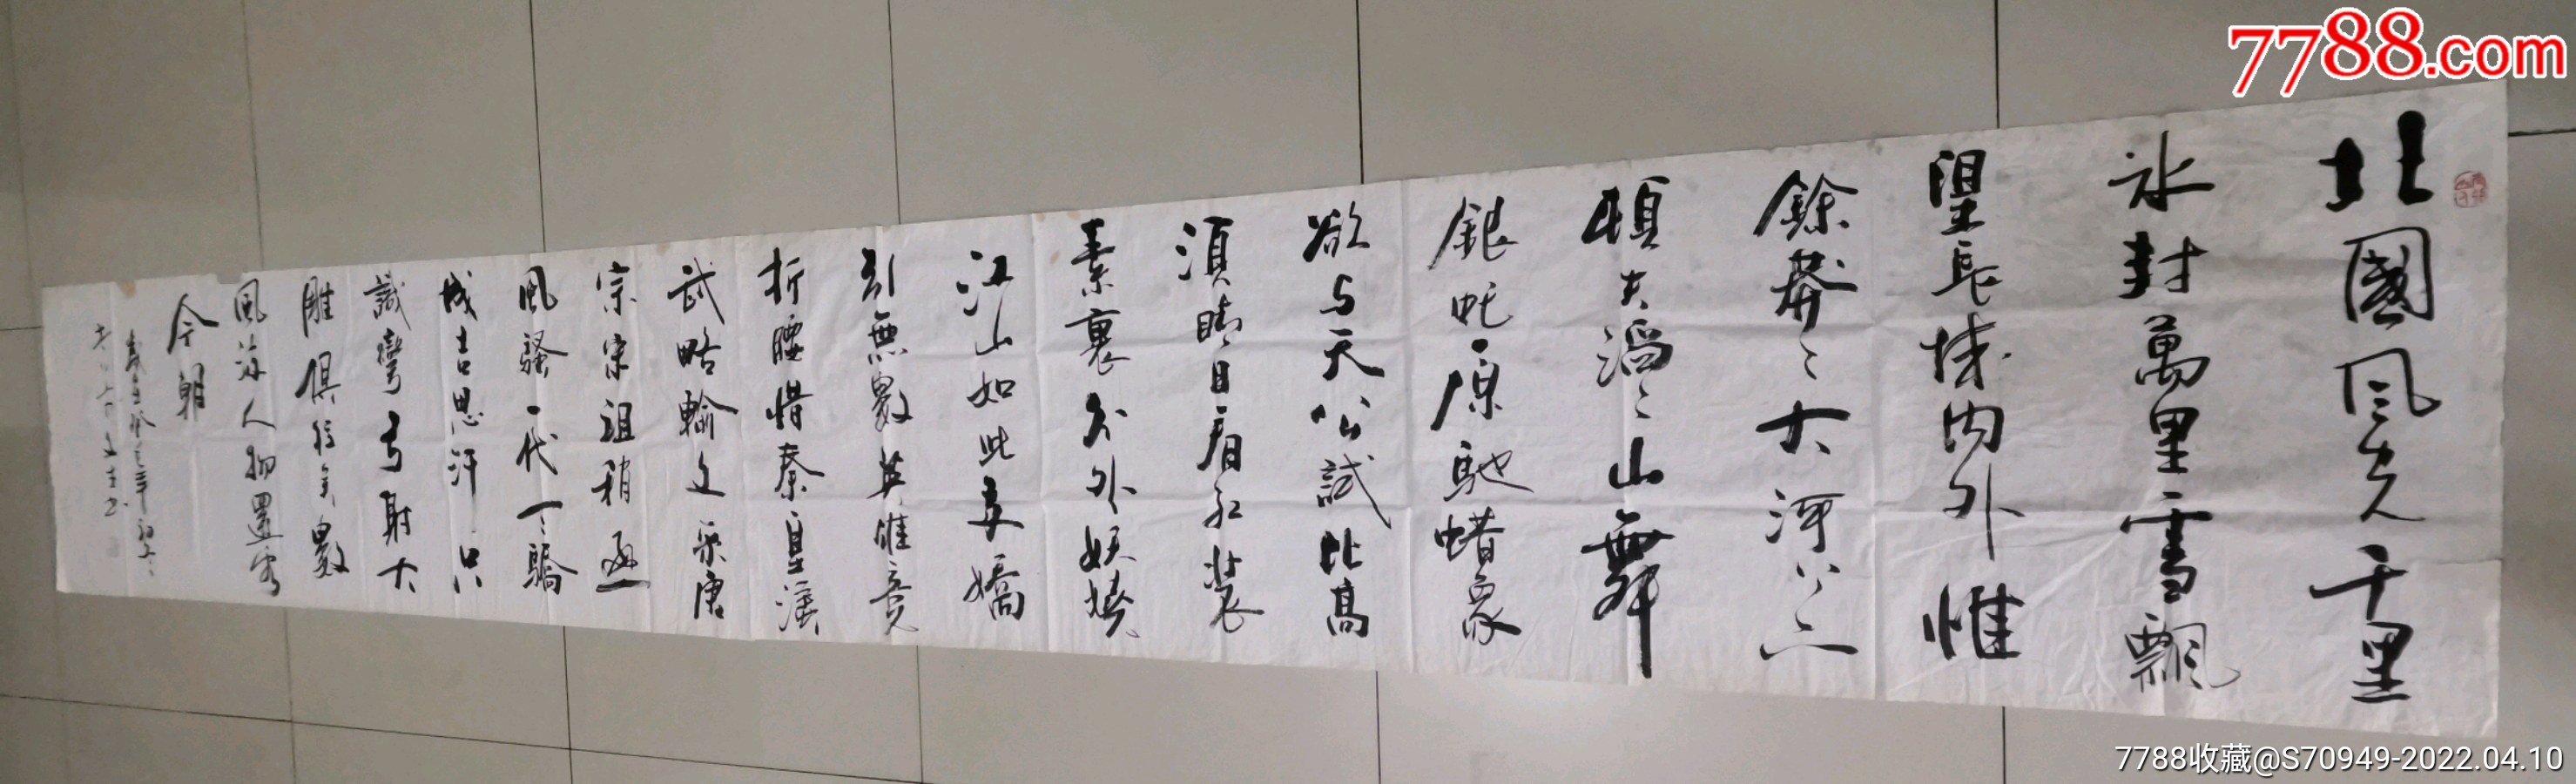 北國風光千里
冰封萬里雪飄
望長城內外惟
餘莽〻大河上下
頓失滔〻山舞
銀蛇原馳蜡象
欲与天公試比高
須晴日看紅裝
素裹分外妖嬈
江山如此多嬌
引無數英雄竞
折腰惜秦皇漢
武略輸文采唐
宗宋祖稍遜
風騷一代天驕
成吉思汗只
識彎弓射大
雕俱往矣數
風流人物還看
今朝
歲在癸巳年
7788.com
7788收藏@S70949-2022.04.10